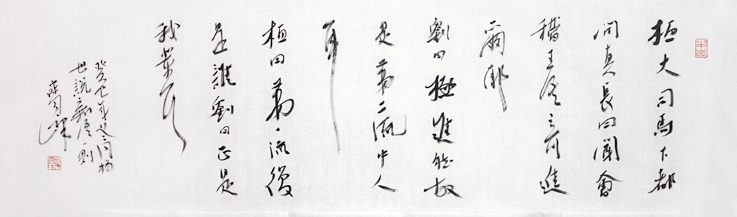 桓大司馬下都
問真長曰聞會
稽王語奇進
爾邪
劉曰極進然故
是第二流中人
耳
桓曰第一流復
是誰劉曰正是
我輩耳
癸巳年
世說新語一則